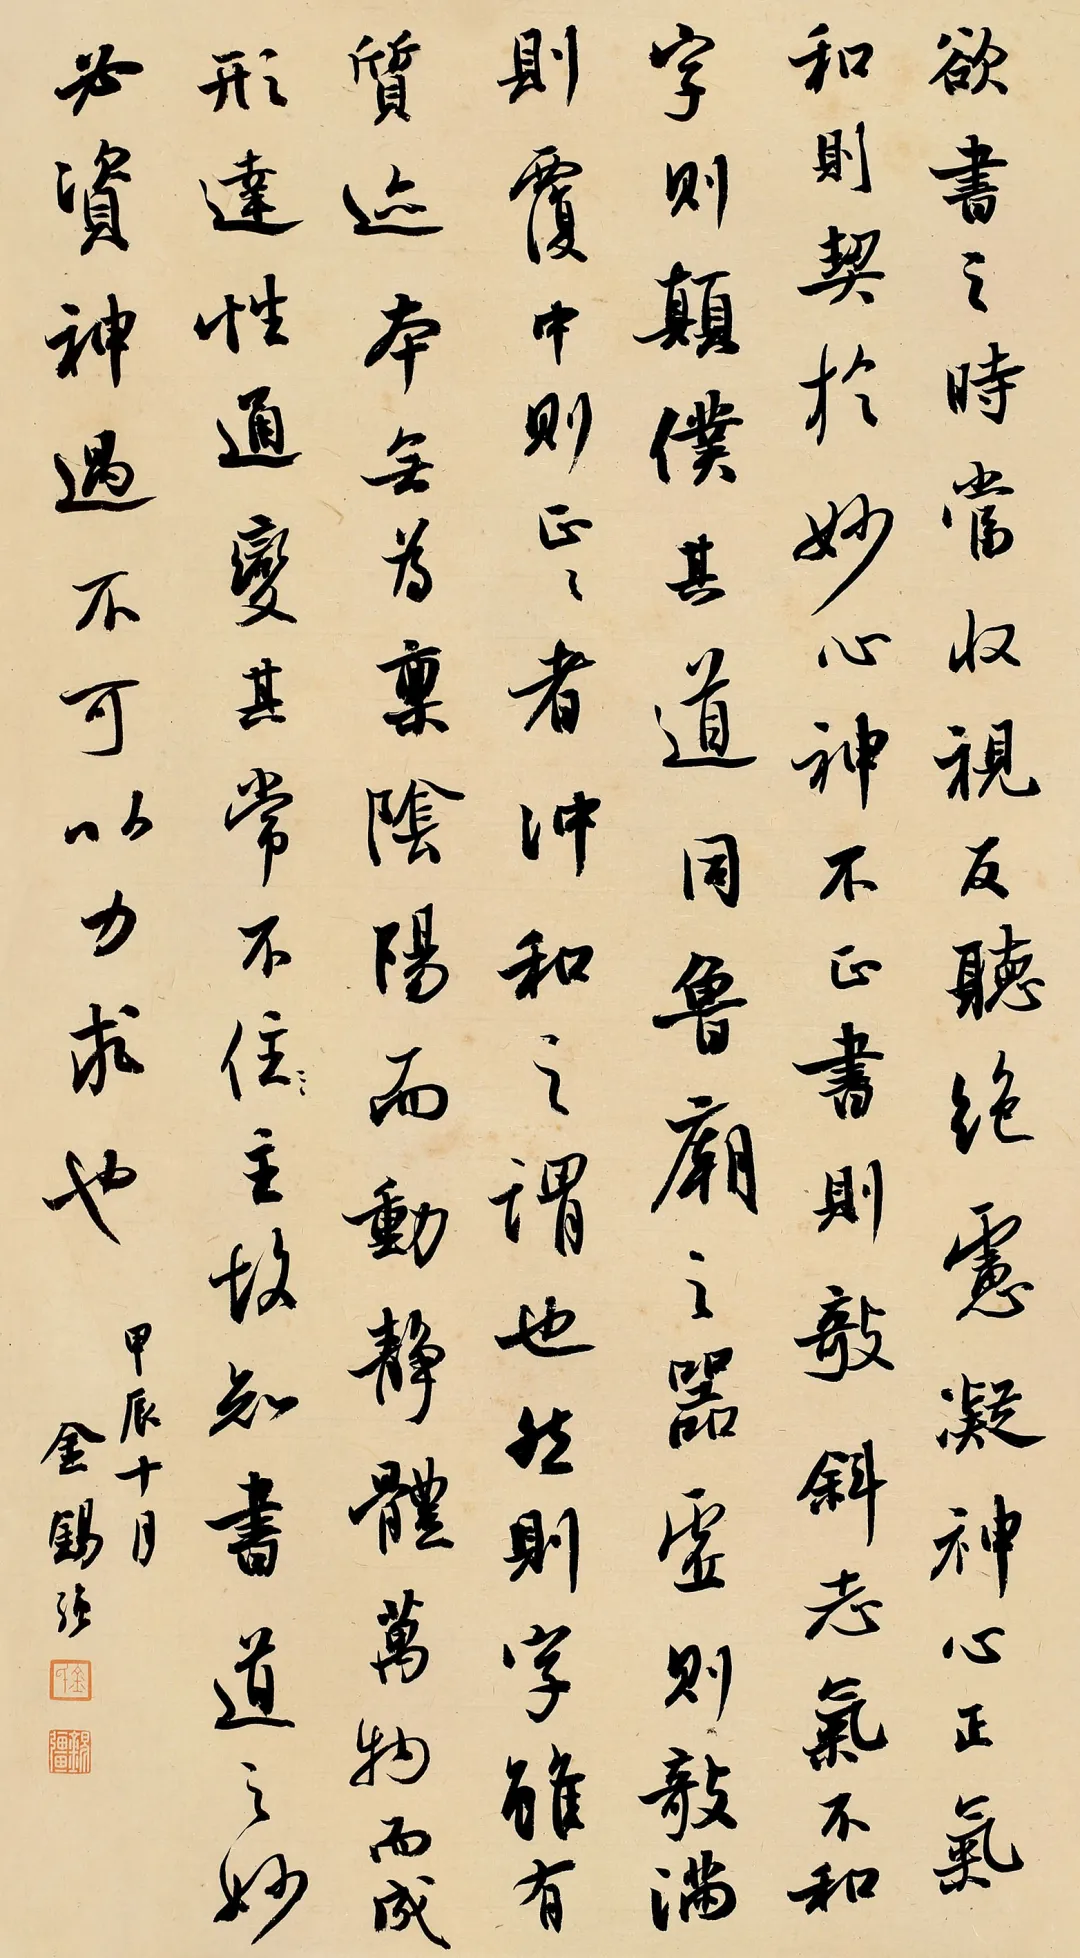 欲書之時當收視反聽絕慮凝神心正氣
和則契於妙心神不正書則敧斜志氣不和
字則顛僕其道同魯廟之器虛則敧滿
則覆中則正正者沖和之謂也然則字雖有
質迹本無為稟陰陽而動靜體萬物而成
形達性通變其常不住主故知書道之妙
必資神遇不可以力求也
甲辰十月
金錫